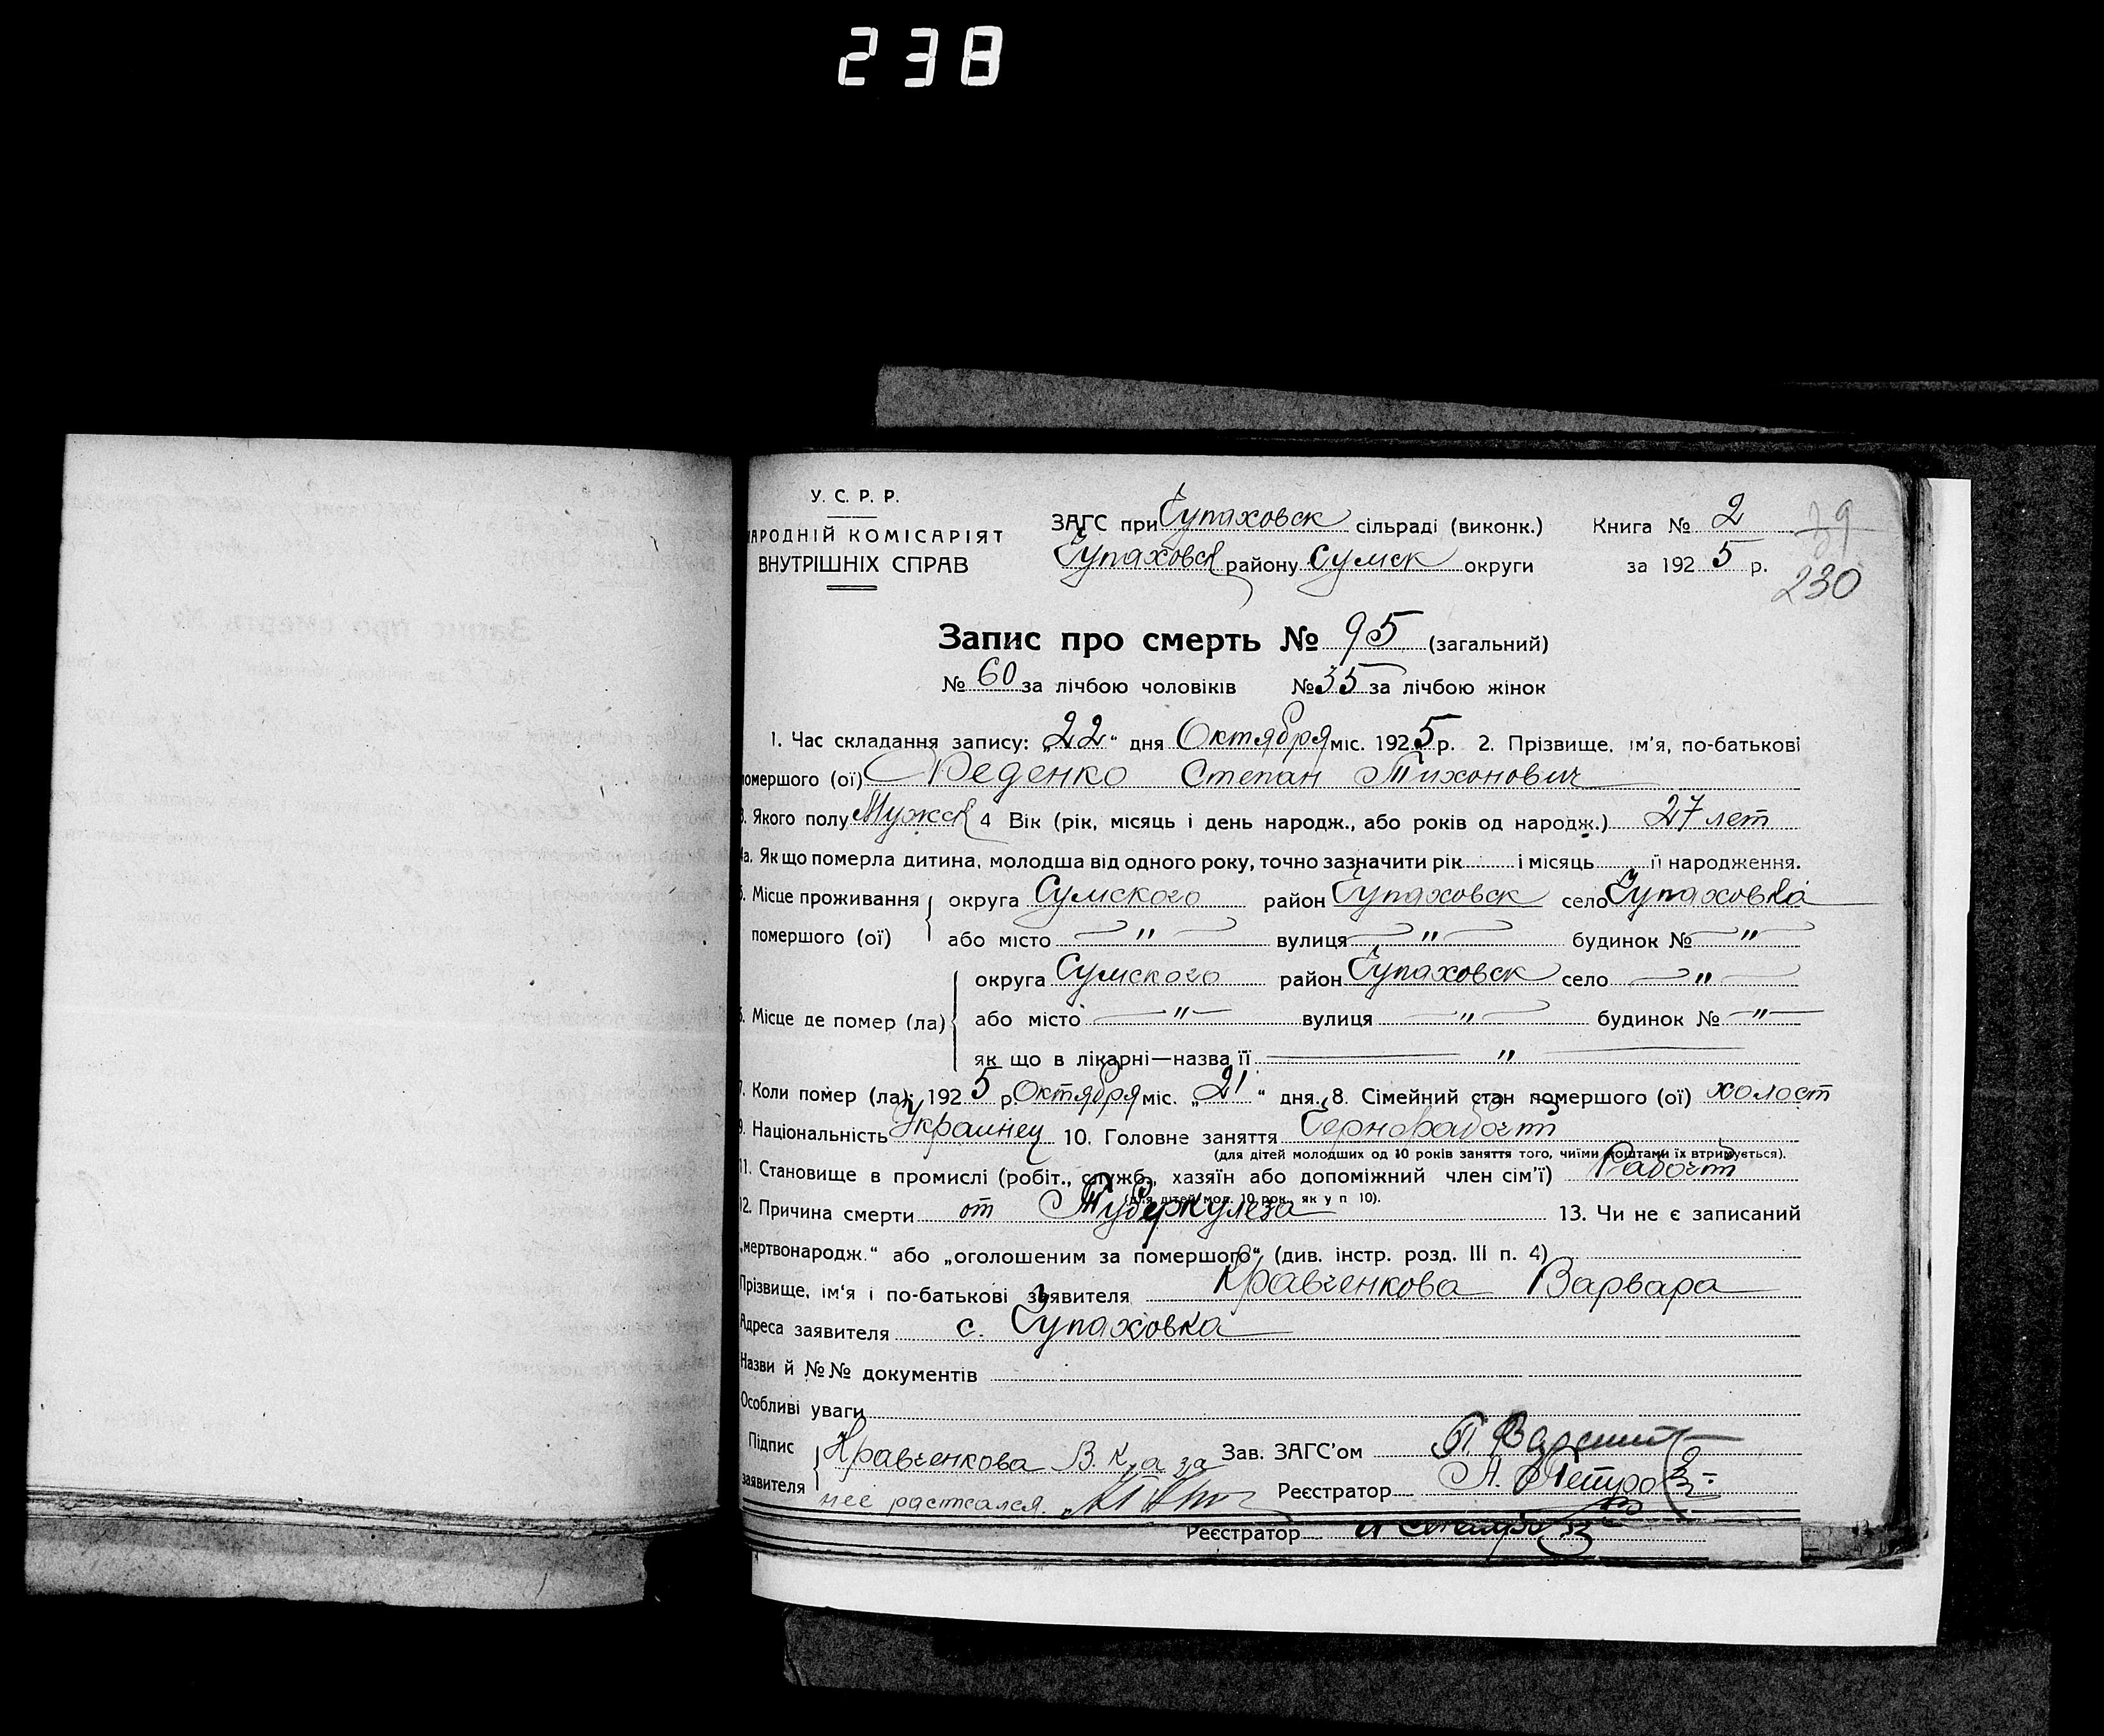 238
У. С. Р. Р.
НАРОДНІЙ КОМІСАРІЯТ
ВНУТРІШНІХ СПРАВ
ЗАГС при Чупаховск сільраді (виконк.)
Чупаховск району Сумск округи
Книга № 2
за 1925 р.
39
230
Запис про смерть № 95 (загальний)
№ 60 за лічбою чоловіків №35 за лічбою жінок
1. Час складання запису: „22“ дня Октября міс. 1925 р. 2. Прізвище, ім'я, по-батькові
помершого (ої) Феденко Степан Тихонович
3. Якого полу Мужск 4 Вік (рік, місяць і день народж., або років од народж.) 27 лет
4а. Якщо померла дитина, молодша від одного року, точно зазначити рік і місяць її народження.
5. Місце проживання округа Сумского район Чупаховск село Чупаховка
помершого (ої) або місто —"— вулиця —"— будинок № —"—
округа Сумского район Чупаховск село —"—
6. Місце де помер (ла) або місто —"— вулиця —"— будинок № —"—
як що в лікарні—назва її —"—
7. Коли помер (ла): 1925 р. Октября міс. „21“ дня. 8. Сімейний стан помершого (ої) холост
9. Національність Украинец 10. Головне заняття Чернорабочий
(для дітей молодших од 10 років заняття того, чиїми коштами їх втримується).
11. Становище в промислі (робіт., служб., хазяїн або допоміжний член сім'ї) Рабочий
(для дітей мол. 10 рок., як у п 10).
12. Причина смерти от Туберкулеза 13. Чи не є записаний
„мертвонародж.“ або „оголошеним за помершого“, (див. інстр. розд. III п. 4)
Прізвище, ім'я і по-батькові заявителя Кравченкова Варвара
Адреса заявителя с. Чупаховка
Назви й №№ документів
Особливі уваги
Підпис Кравченкова В. К, а за Зав. ЗАГС'ом П
заявителя нее Реєстратор А.
Реєстратор